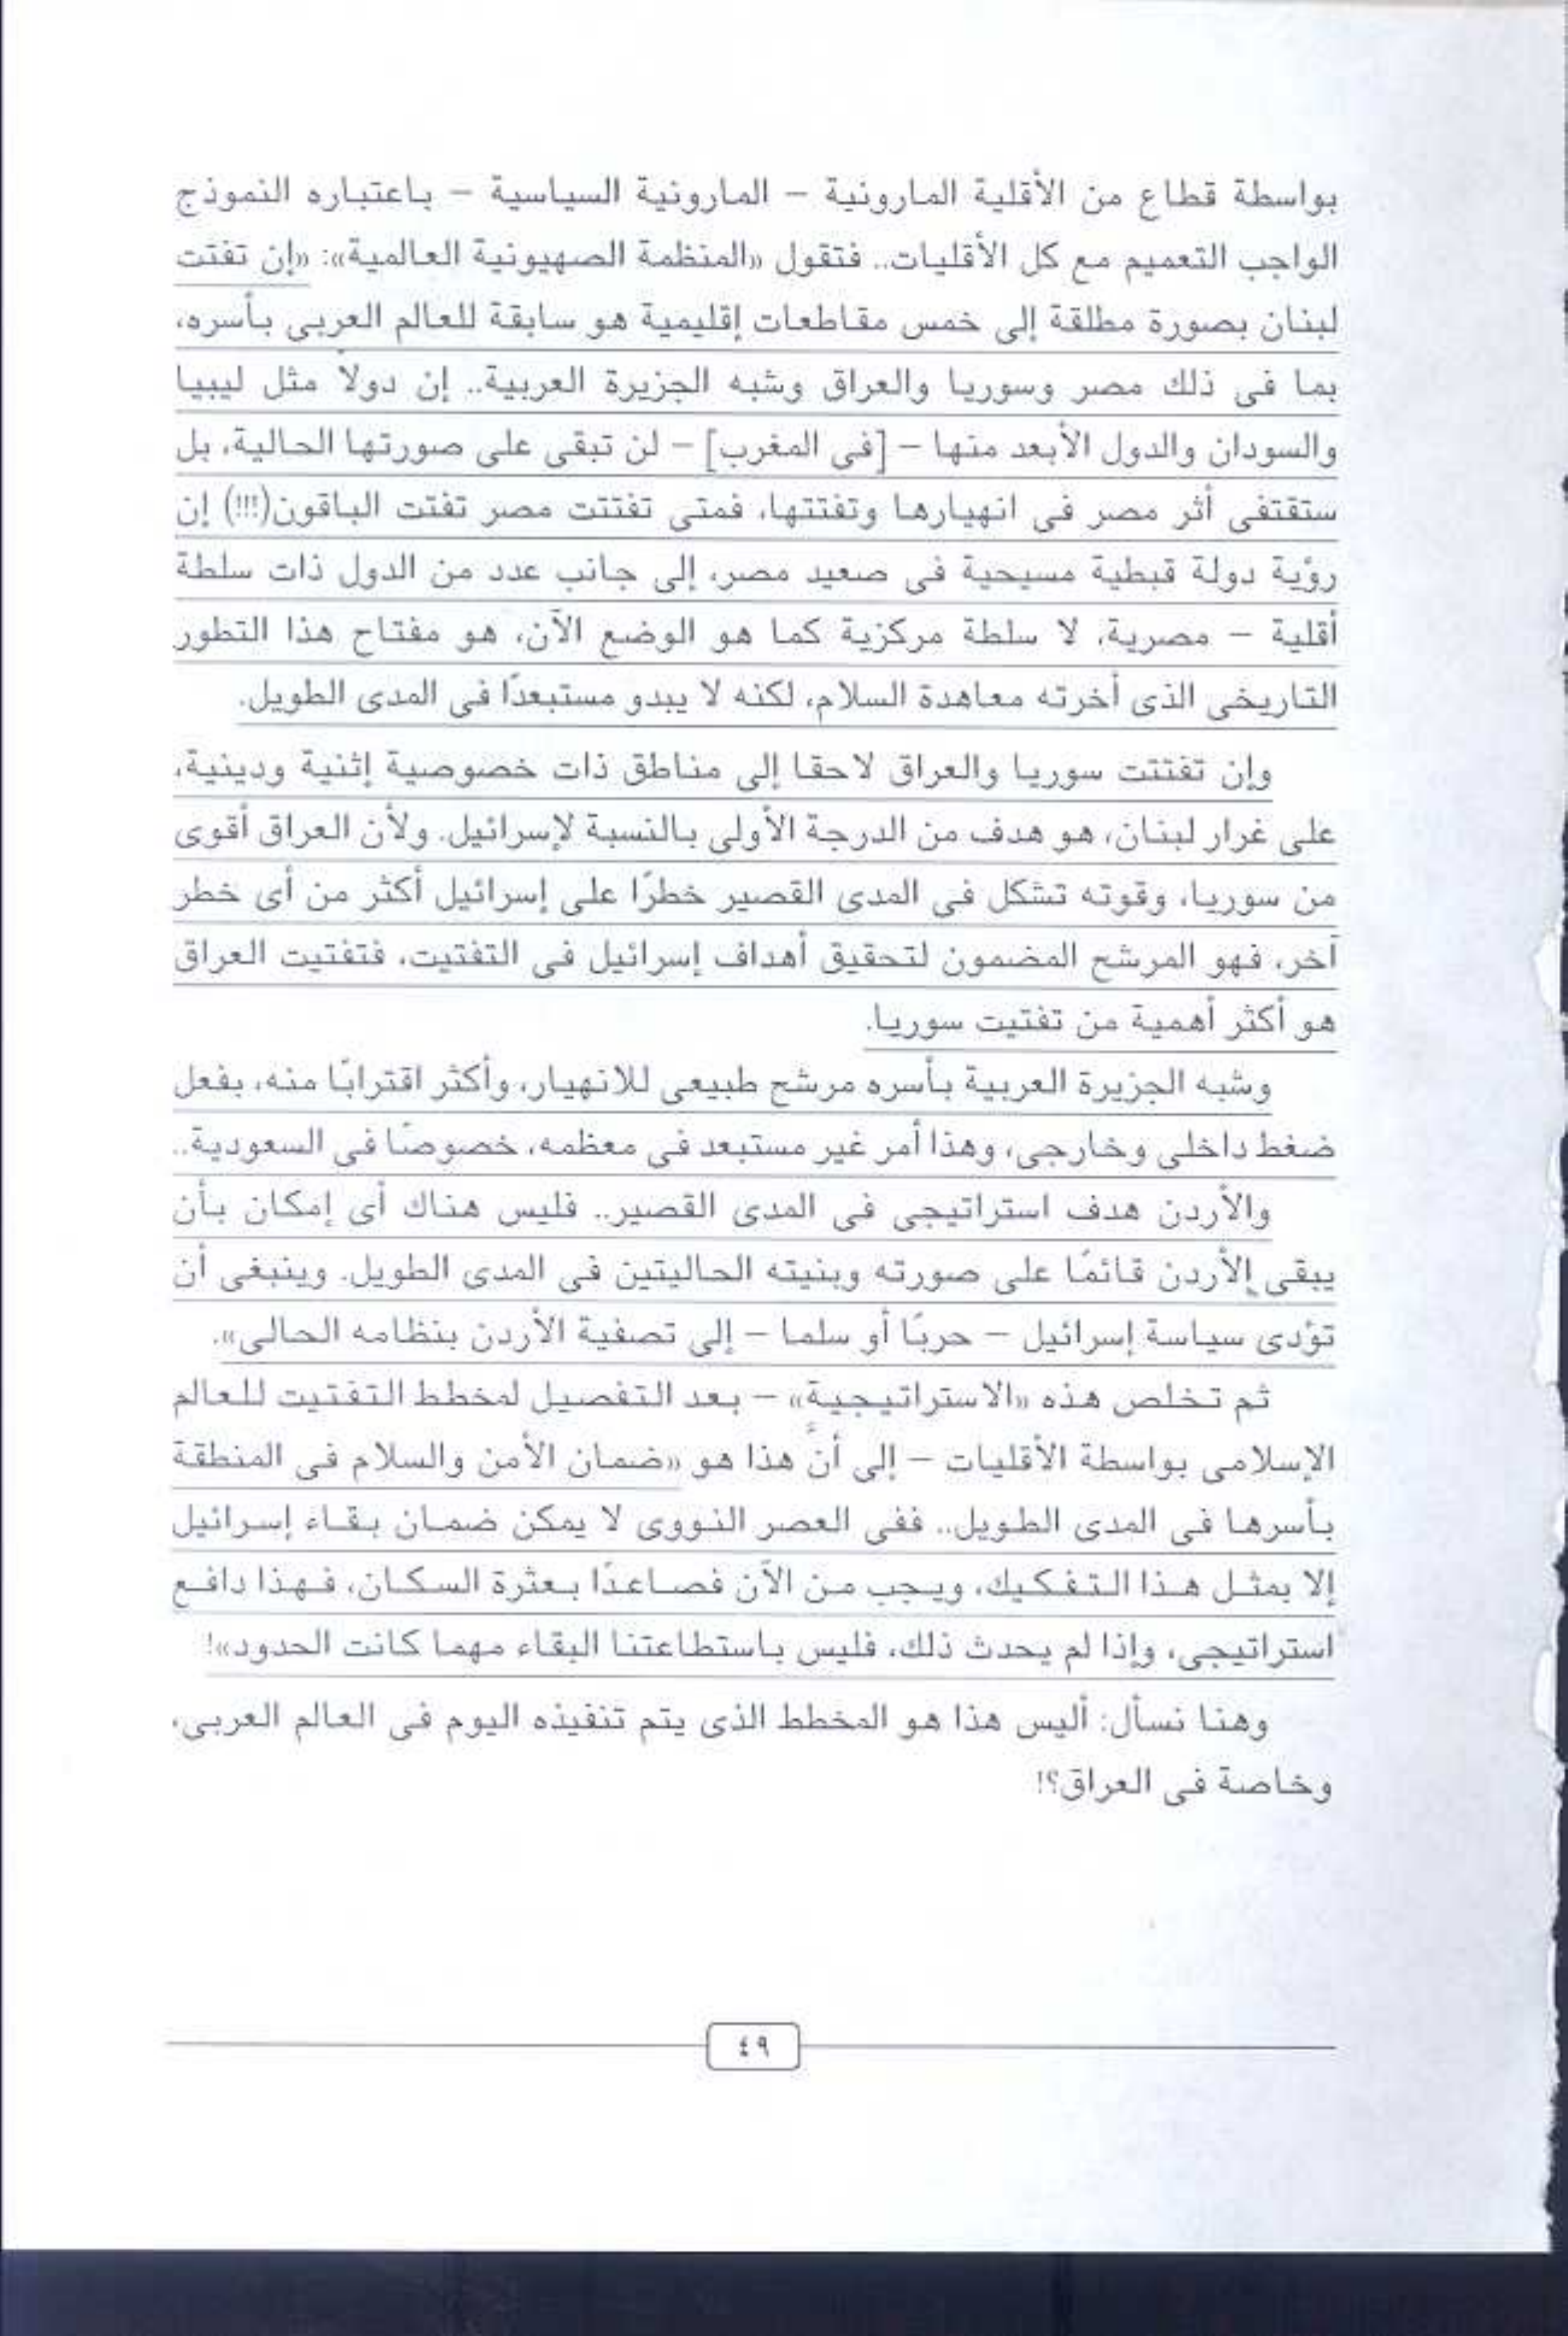 بواسطة قطاع من الأقلية المارونية – المارونية السياسية – باعتباره النموذج
الواجب التعميم مع كل الأقليات.. فتقول «المنظمة الصهيونية العالمية»: «إن تفتت
لبنان بصورة مطلقة إلى خمس مقاطعات إقليمية هو سابقة للعالم العربى بأسره،
بما فى ذلك مصر وسوريا والعراق وشبه الجزيرة العربية.. إن دولاً مثل ليبيا
والسودان والدول الأبعد منها – [فى المغرب] – لن تبقى على صورتها الحالية، بل
ستقتفى أثر مصر فى انهيارها وتفتتها، فمتى تفتتت مصر تفتت الباقون(!!!) إن
رؤية دولة قبطية مسيحية فى صعيد مصر، إلى جانب عدد من الدول ذات سلطة
أقلية – مصرية، لا سلطة مركزية كما هو الوضع الآن، هو مفتاح هذا التطور
التاريخى الذى أخرته معاهدة السلام، لكنه لا يبدو مستبعدًا فى المدى الطويل.
وإن تفتتت سوريا والعراق لاحقا إلى مناطق ذات خصوصية إثنية ودينية،
على غرار لبنان، هو هدف من الدرجة الأولى بالنسبة لإسرائيل. ولأن العراق أقوى
من سوريا، وقوته تشكل فى المدى القصير خطرًا على إسرائيل أكثر من أى خطر
آخر، فهو المرشح المضمون لتحقيق أهداف إسرائيل فى التفتيت، فتفتيت العراق
هو أكثر أهمية من تفتيت سوريا.
وشبه الجزيرة العربية بأسره مرشح طبيعى للانهيار، وأكثر اقترابًا منه، بفعل
ضغط داخلى وخارجى، وهذا أمر غير مستبعد فى معظمه، خصوصًا فى السعودية..
والأردن هدف استراتيجى فى المدى القصير.. فليس هناك أى إمكان بأن
يبقى الأردن قائمًا على صورته وبنيته الحاليتين فى المدى الطويل. وينبغى أن
تؤدى سياسة إسرائيل – حربًا أو سلما – إلى تصفية الأردن بنظامه الحالى».
ثم تخلص هذه «الاستراتيجية» – بعد التفصيل لمخطط التفتيت للعالم
الإسلامى بواسطة الأقليات – إلى أنَّ هذا هو «ضمان الأمن والسلام فى المنطقة
بأسرها فى المدى الطويل.. ففى العصر النووى لا يمكن ضمان بقاء إسرائيل
إلا بمثل هذا التفكيك، ويجب من الآن فصاعدًا بعثرة السكان، فهذا دافع
استراتيجى، وإذا لم يحدث ذلك، فليس باستطاعتنا البقاء مهما كانت الحدود»!
وهنا نسأل: أليس هذا هو المخطط الذى يتم تنفيذه اليوم فى العالم العربى،
وخاصة فى العراق؟!
٤٩